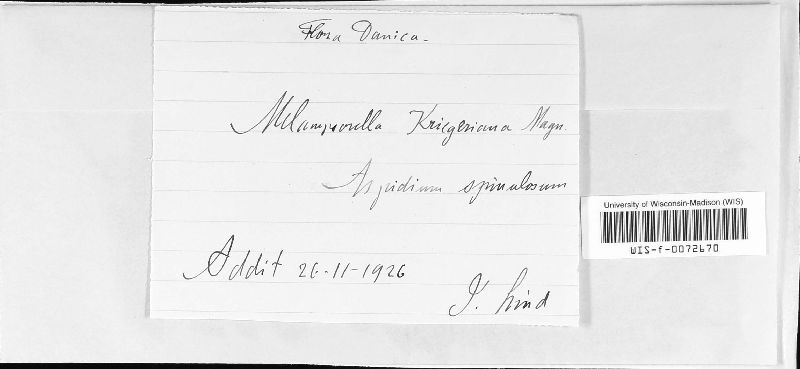 Flora Danica.
Melampsorella Kriegeriana Magn.
Aspidium spinulosum
University of Wisconsin-Madison (WIS)
WIS-f-0072670
Addit 26-11-1926
J. Lind